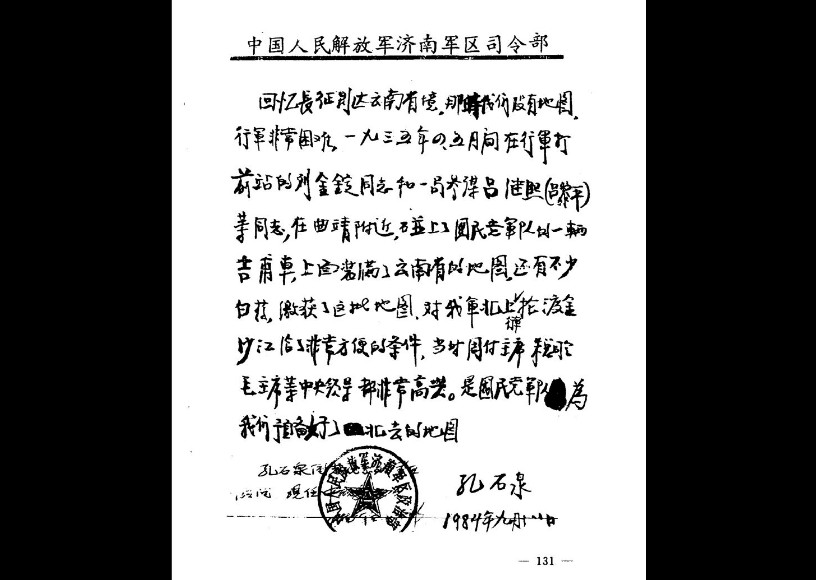 中国人民解放军济南军区司令部
回忆長征到达云南省境,那時我们没有地图,
行軍非常困难,一九三五年四、五月间在行軍打
前站的刘金錠同志和一局参谋吕继熙(吕黎平)
等同志,在曲靖附近,碰上了國民党軍队的一輛
吉甫車,上面装满了云南省的地图,还有不少
白药,缴获了这批地图,对我軍北上抢渡金
沙江给了非常方便的条件,当时周付主席
毛主席等中央领导都非常高兴。是國民党軍队為
我们預备好了北去的地图
孔石泉
孔石泉
现任
1984年九月
— 131 —